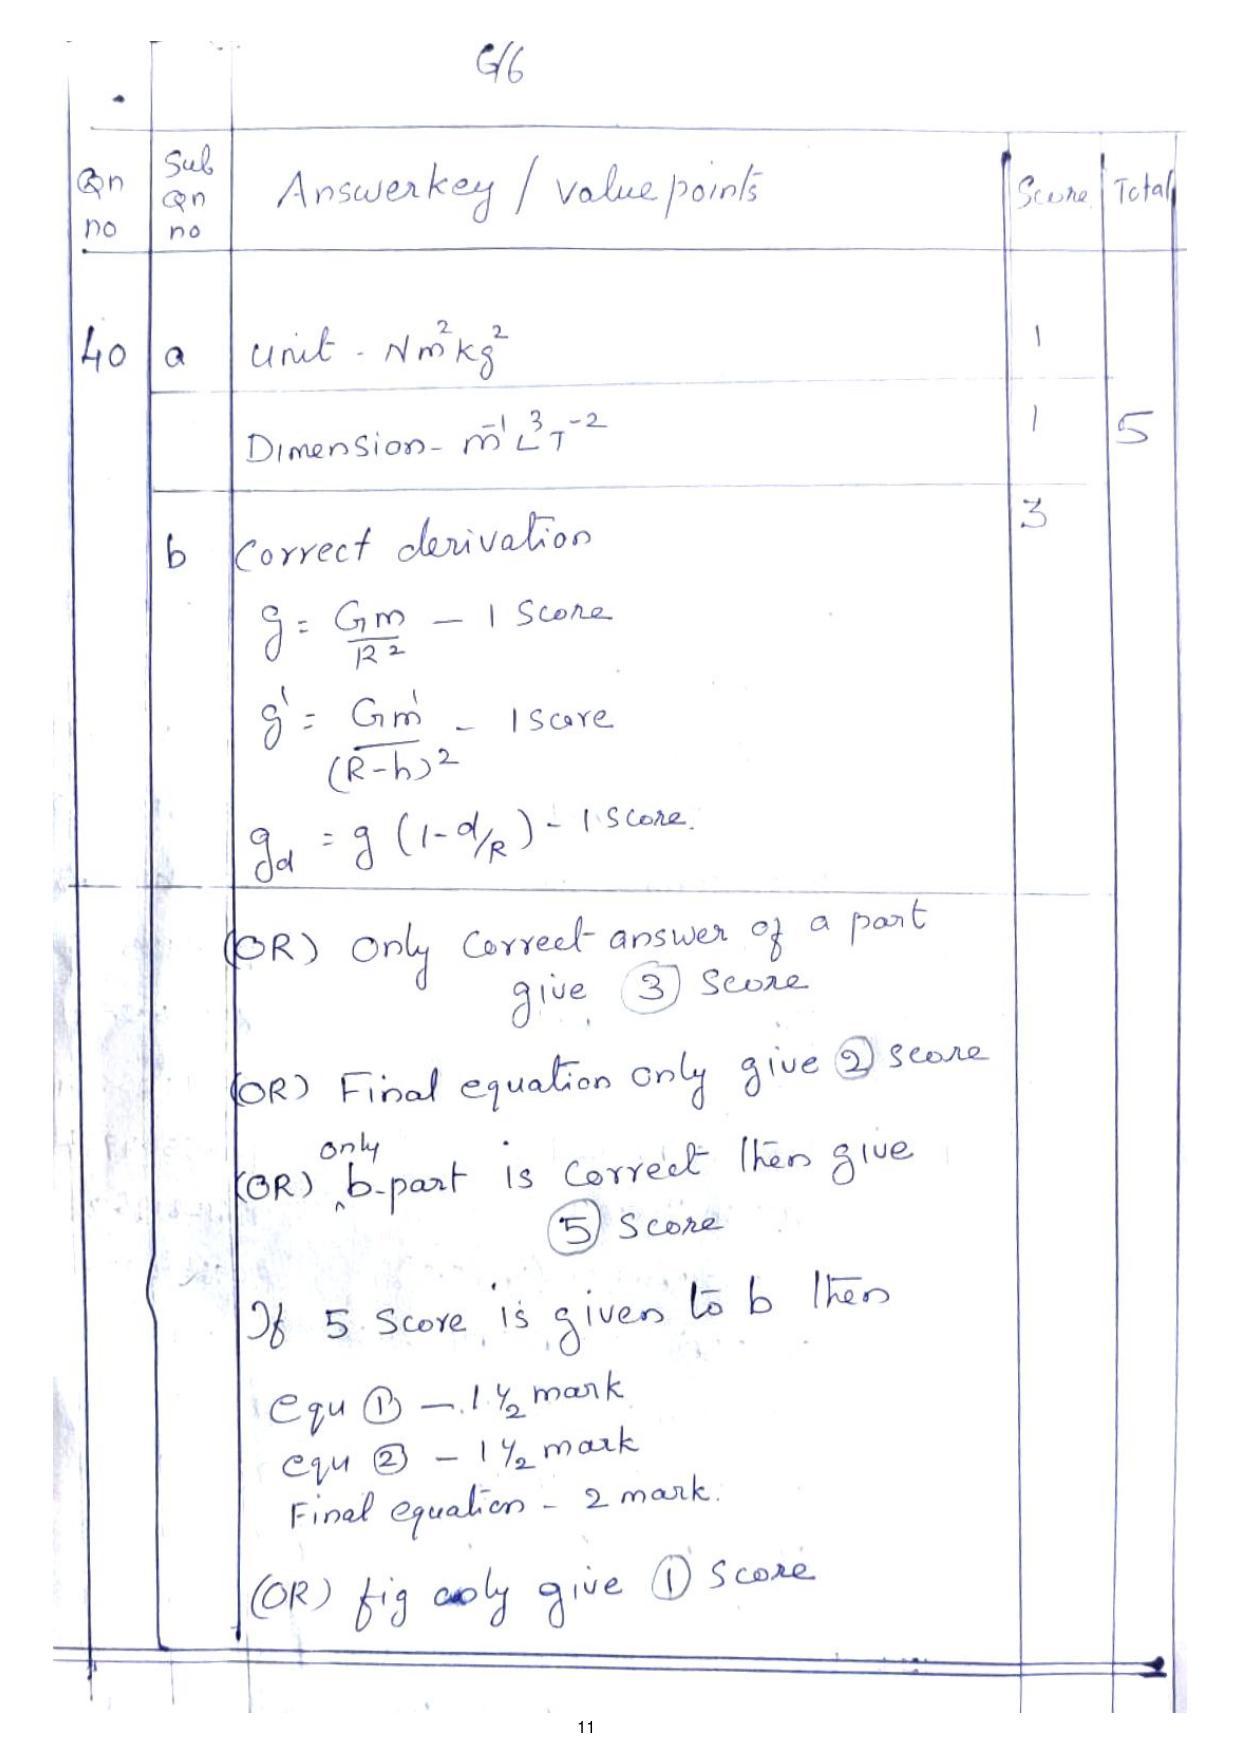 G/6
Qn no
Sub Qn no
Answerkey / value points
Score
Total
40 a Unit - Nm²kg² 1
Dimension - m⁻¹L³T⁻² 1 5
b Correct derivation 3
g = Gm/R² - 1 Score
g' = Gm'/(R-h)² - 1 Score
g_d = g (1-d/R) - 1 Score.
(OR) Only Correct answer of a part
give ③ Score
(OR) Final equation only give ② score
(OR) only b-part is correct then give
⑤ Score
If 5 Score is given to b then
equ ① - 1 ½ mark
equ ② - 1 ½ mark
Final equation - 2 mark.
(OR) fig only give ① Score
11